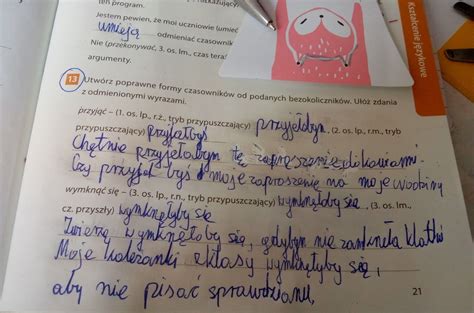 ten program.
Jestem pewien, że moi uczniowie (umieć
umieją odmieniać czasownik
Nie (przekonywać, 3. os. lm., czas tera
argumenty.
Kształcenie językowe
13 Utwórz poprawne formy czasowników od podanych bezokoliczników. Ułóż zdania
z odmienionymi wyrazami.
przyjąć – (1. os. lp., r.ż., tryb przypuszczający) przyjęłabym, (2. os. lp., r.m., tryb
przypuszczający) przyjąłbyś
Chętnie przyjęłabym tę
Czy przyjął byś moje zaproszenie na moje urodziny
wymknąć się – (3. os. lp., r.n., tryb przypuszczający) wymknęłoby się, (3. os. lm.,
cz. przyszły) wymknęłyby się
Zwierzę wymknęłoby się, gdybym nie zamknęła klatki
Moje koleżanki z klasy wymknęłyby się,
aby nie pisać sprawdzianu,
21